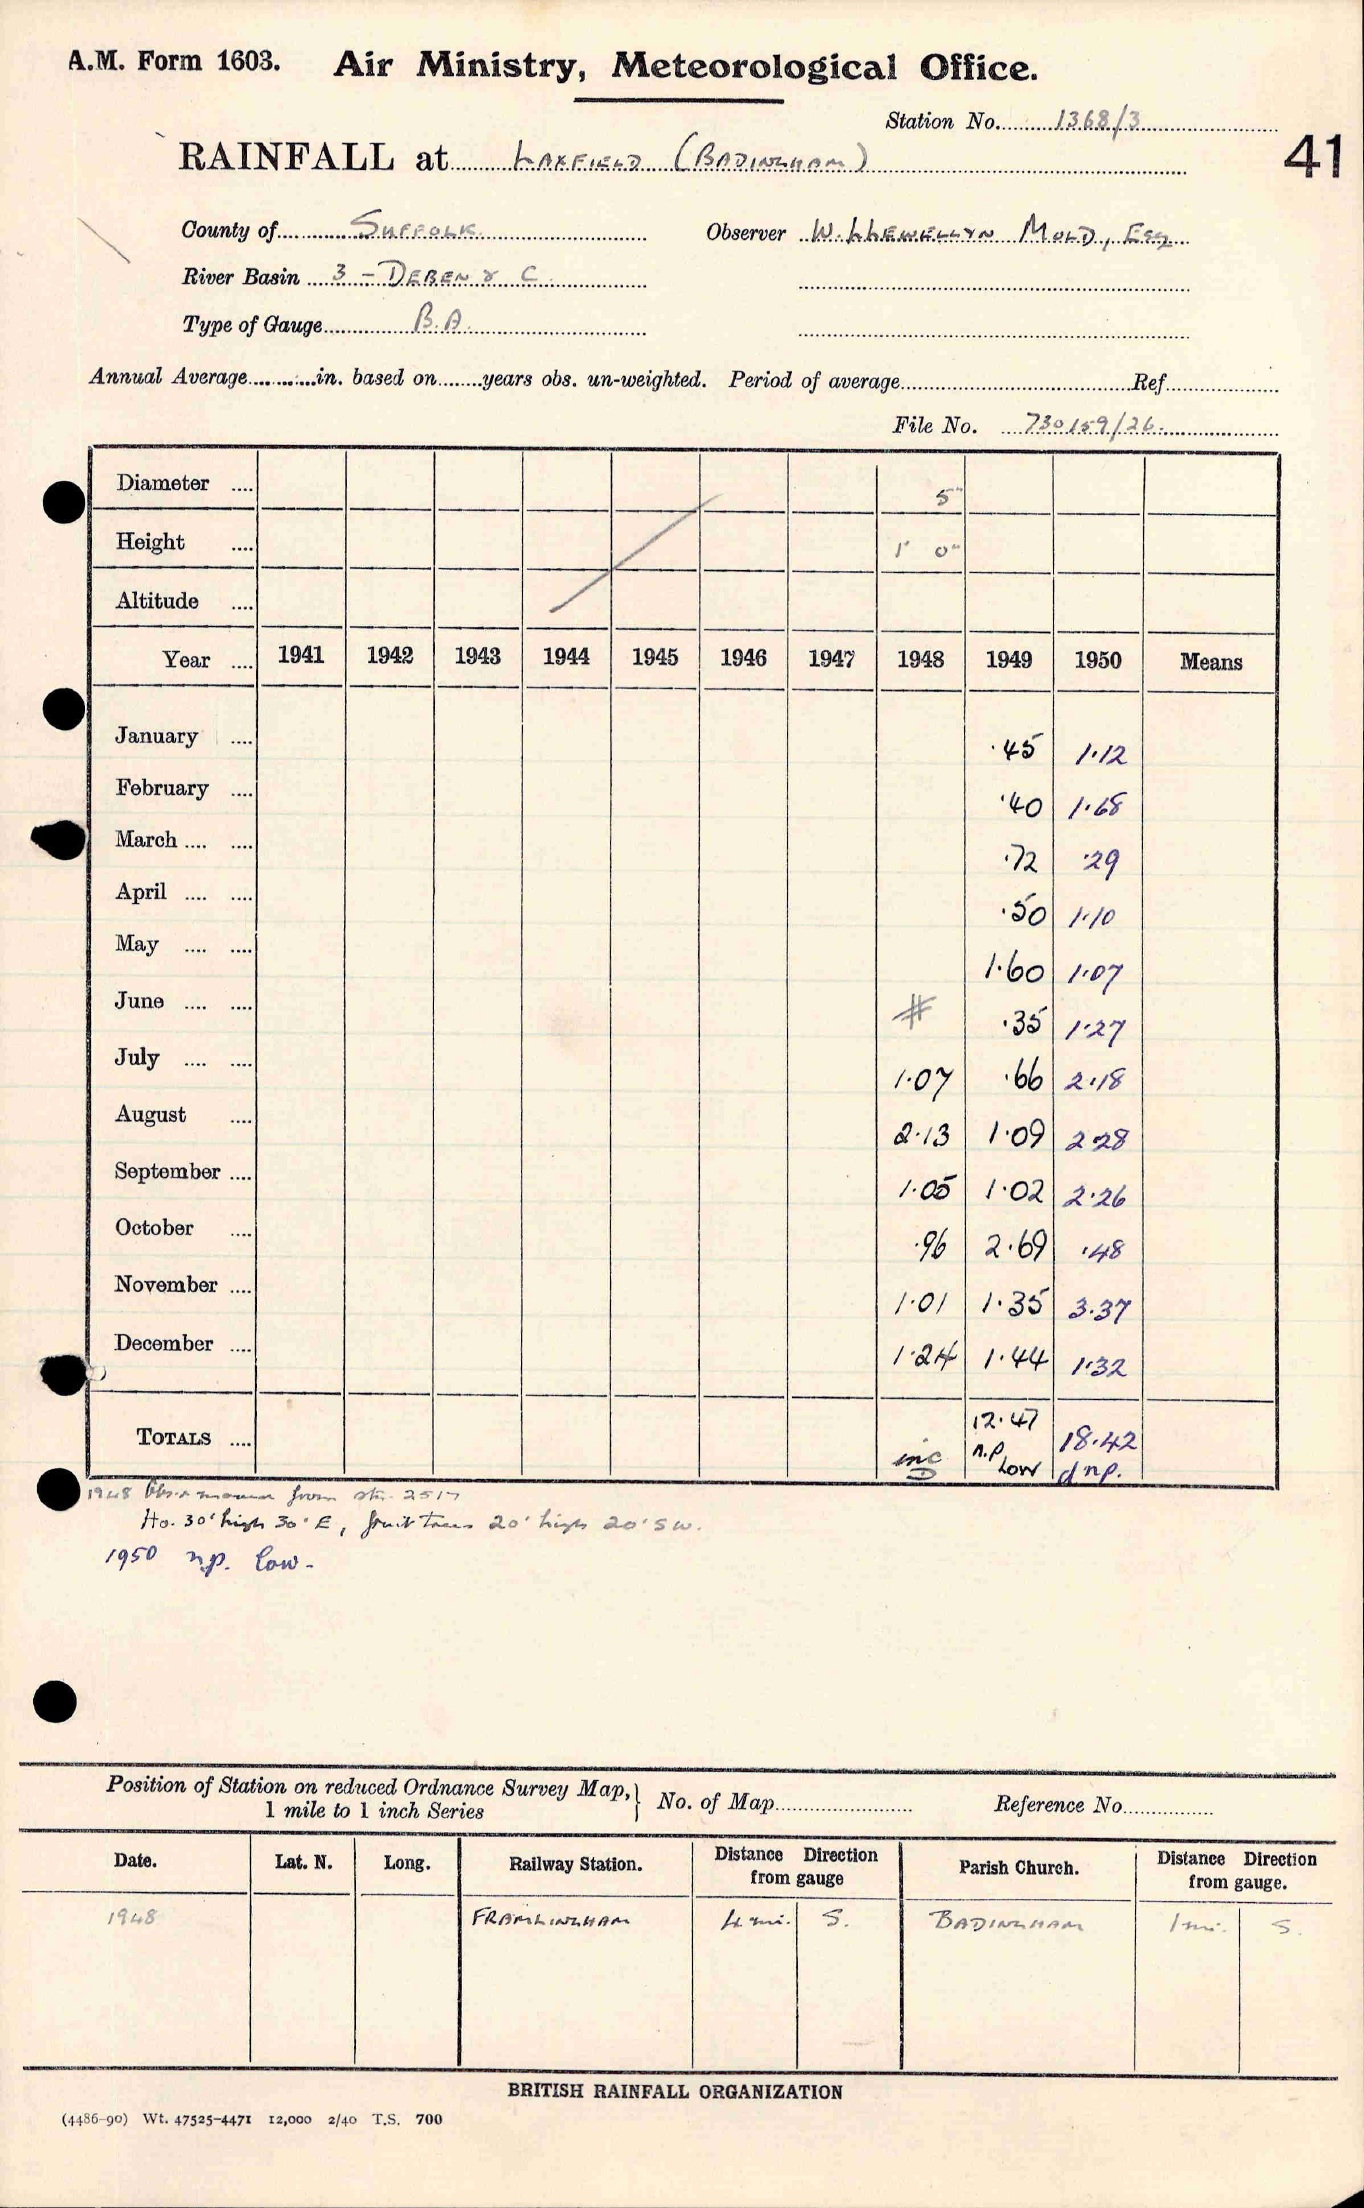 A.M. Form 1603. Air Ministry, Meteorological Office.
Station No. 1368/3
41
RAINFALL at LAXFIELD (BADINGHAM)
County of SUFFOLK Observer W. LLEWELLYN MOLD, ESQ
River Basin 3 - DEBEN & C
Type of Gauge B.A.
Annual Average............in. based on........years obs. un-weighted. Period of average........Ref........
File No. 730159/26.
Diameter .... 5"
Height .... 1' 0"
Altitude ....
Year .... 1941 1942 1943 1944 1945 1946 1947 1948 1949 1950 Means
January .... ·45 1·12
February .... ·40 1·68
March .... .... ·72 ·29
April .... .... ·50 1·10
May .... .... 1·60 1·07
June .... .... # ·35 1·27
July .... .... 1·07 ·66 2·18
August .... 2·13 1·09 2·28
September .... 1·05 1·02 2·26
October .... ·96 2·69 ·48
November .... 1·01 1·35 3·37
December .... 1·24 1·44 1·32
TOTALS .... inc D 12·47 n.p. Low 18·42 d n.p.
1948 from stn. 2517
Ho. 30' high 30' E, fruit trees 20' high 20' SW.
1950 n.p. low -
Position of Station on reduced Ordnance Survey Map,} No. of Map........ Reference No........
1 mile to 1 inch Series
Date. Lat. N. Long. Railway Station. Distance Direction from gauge Parish Church. Distance Direction from gauge.
1948 FRAMLINGHAM 4 mi. S. BADINGHAM 1 mi. S.
BRITISH RAINFALL ORGANIZATION
(4486-90) Wt. 47525-4471 12,000 2/40 T.S. 700